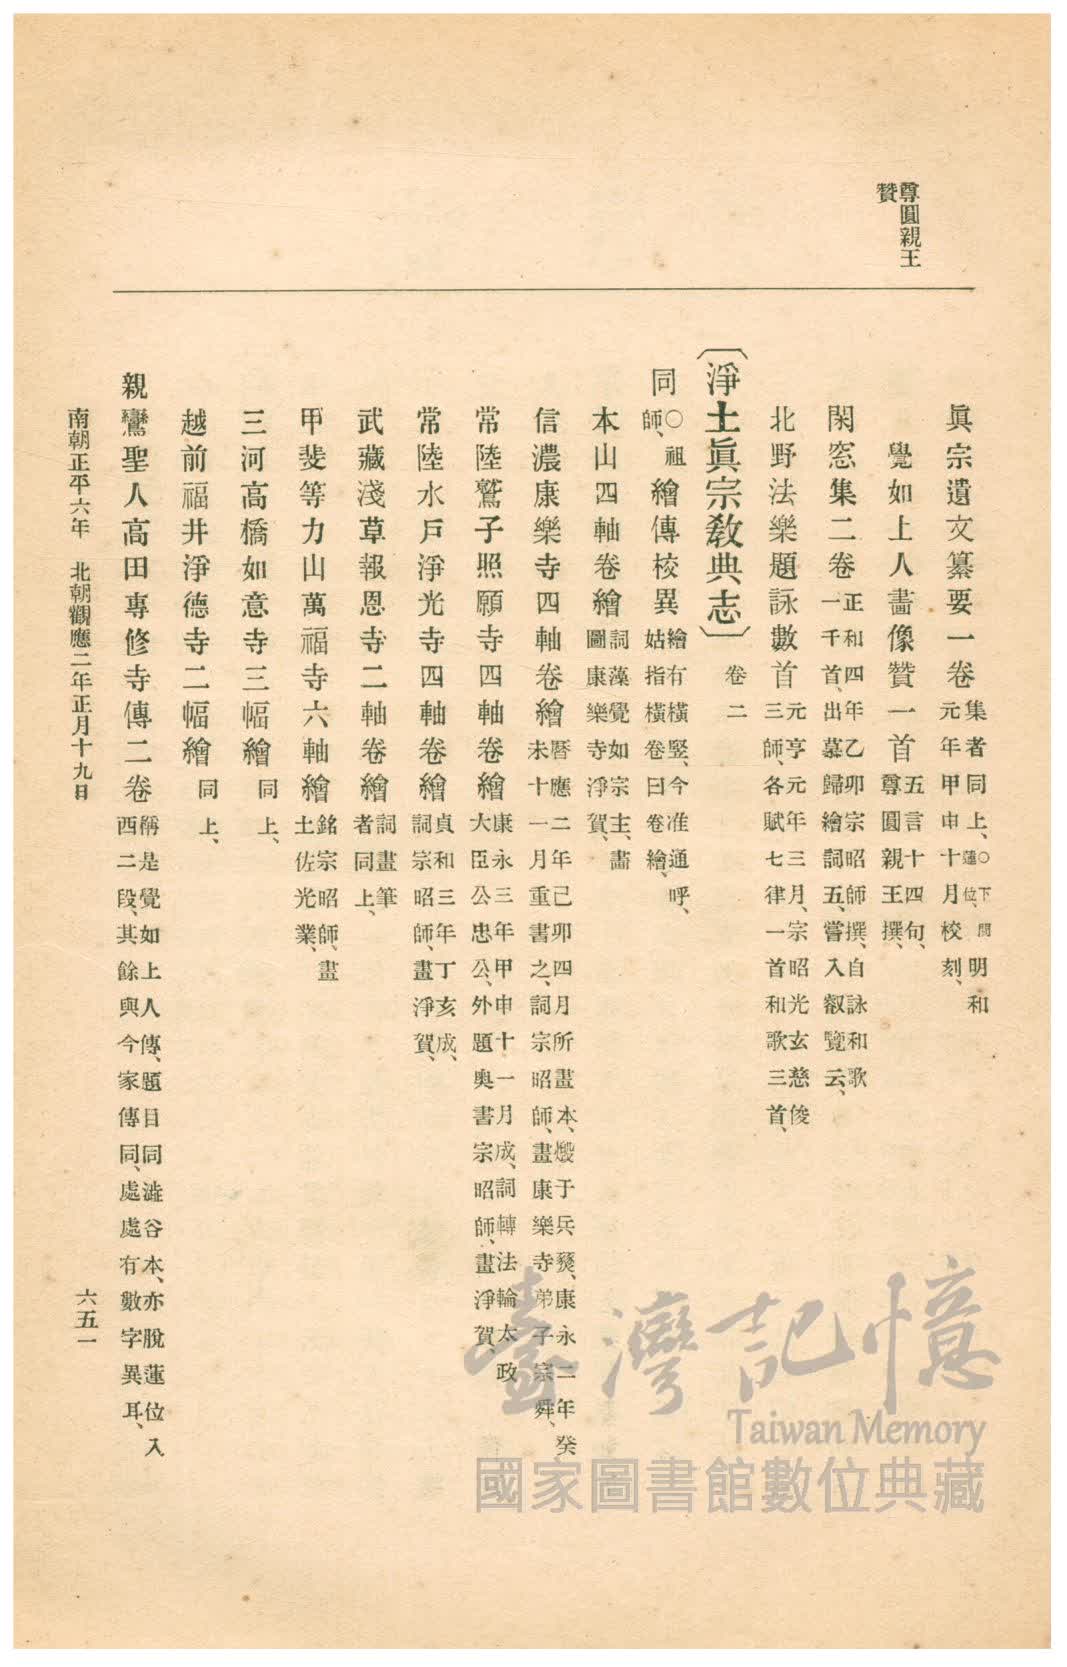 尊圓親王
贊
眞宗遺文纂要一卷 集者同上、○下闕蓮位、明和元年甲申十月校刻、
覺如上人畵像贊一首 五言十四句、尊圓親王撰、
閑窓集二卷 正和四年乙卯宗昭師撰、自詠和歌一千首、出慕歸繪詞五、嘗入叡覽云、
北野法樂題詠數首 元亨元年三月、宗昭光玄慈俊三師、各賦七律一首和歌三首、
〔淨土眞宗敎典志〕 卷二
同○祖師、繪傳校異 繪有橫竪、今准通呼、姑指橫卷曰卷繪、
本山四軸卷繪 詞藻覺如宗主、畵圖康樂寺淨賀、
信濃康樂寺四軸卷繪 曆應二年己卯四月所畫本、燬于兵燹、康永二年癸未十一月重書之、詞宗昭師、畫康樂寺弟子宗舜、
常陸鷲子照願寺四軸卷繪 康永三年甲申十一月成、詞轉法輪太政大臣公忠公、外題奧書宗昭師、畫淨賀、
常陸水戶淨光寺四軸卷繪 貞和三年丁亥成、詞宗昭師、畫淨賀、
武藏淺草報恩寺二軸卷繪 詞畫筆者同上、
甲斐等力山萬福寺六軸繪 銘宗昭師、畫土佐光業、
三河高橋如意寺三幅繪 同上、
越前福井淨德寺二幅繪 同上、
親鸞聖人高田專修寺傳二卷 稱是覺如上人傳、題目同澁谷本、亦脫蓮位入西二段、其餘與今家傳同、處處有數字異耳、
南朝正平六年 北朝觀應二年正月十九日
六五一
臺灣記憶
Taiwan Memory
國家圖書館數位典藏